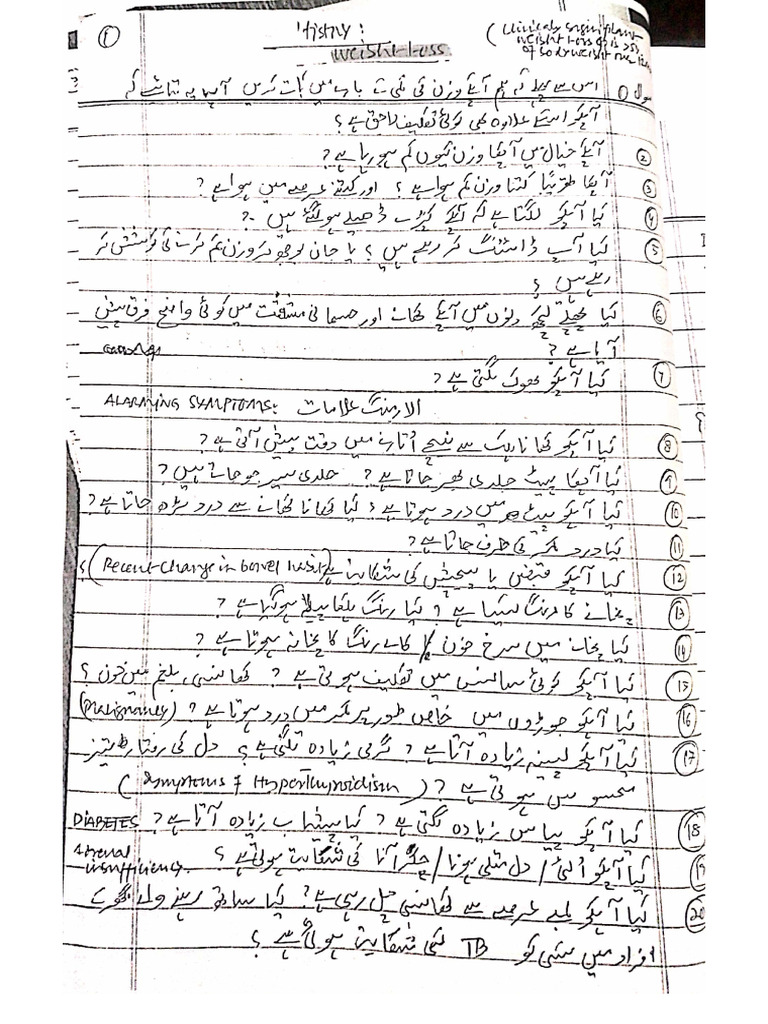 ①
History:
Weight Loss
(Clinically significant weight loss is >5% of bodyweight
سوال ① اس سے پہلے کہ ہم آپکے وزن کی کمی کے بارے میں بات کریں آپ یہ بتائیے کہ
آپکو اسکے علاوہ بھی کوئی تکلیف لاحق ہے؟
② آپکے خیال میں آپکا وزن کیوں کم ہو رہا ہے؟
③ آپکا تقریباً کتنا وزن کم ہوا ہے؟ اور کتنے عرصے میں ہوا ہے؟
④ کیا آپکو لگتا ہے کہ آپکے کپڑے ڈھیلے ہو گئے ہیں؟
⑤ کیا آپ ڈائٹنگ کر رہے ہیں؟ یا جان بوجھ کر وزن کم کرنے کی کوشش کر
رہے ہیں؟
⑥ کیا پچھلے کچھ دنوں میں آپکے کھانے اور جسمانی مشقت میں کوئی واضح فرق
آیا ہے؟
⑦ کیا آپکو بھوک لگتی ہے؟
ALARMING SYMPTOMS: الارمنگ علامات
⑧ کیا آپکو کھانا نیچے اُتارنے میں دقت پیش آتی ہے؟
⑨ کیا آپکا پیٹ جلدی بھر جاتا ہے؟ جلدی سیر ہو جاتے ہیں؟
⑩ کیا آپکو پیٹ میں درد ہوتا ہے؟ کیا کھانا کھانے سے درد بڑھ جاتا ہے؟
⑪ کیا درد کمر کی طرف جاتا ہے؟
⑫ کیا آپکو قبض یا پیچش کی شکایت ہے (Recent change in bowel habit)؟
⑬ پخانے کا رنگ کیسا ہے؟ کیا رنگ ہلکا پیلا ہو گیا ہے؟
⑭ کیا پخانے میں سرخ خون / کالے رنگ کا پخانہ ہوتا ہے؟
⑮ کیا آپکو کوئی سانس میں تکلیف ہوتی ہے؟ کھانسی، بلغم میں خون؟
⑯ کیا آپکو جوڑوں میں خاص طور پر کمر میں درد ہوتا ہے؟ (Malignancy)
⑰ کیا آپکو پسینہ زیادہ آتا ہے؟ گرمی زیادہ لگتی ہے؟ دل کی رفتار تیز
محسوس ہوتی ہے؟ (Symptoms of Hyperthyroidism)
⑱ کیا آپکو پیاس زیادہ لگتی ہے؟ کیا پیشاب زیادہ آتا ہے؟ DIABETES
⑲ کیا آپکو اُلٹی / دل متلی ہونا / چکر آنا کی شکایت ہوتی ہے؟ Adrenal insufficiency
⑳ کیا آپکو لمبے عرصے سے کھانسی چل رہی ہے؟ کیا ساتھ رہنے والے
افراد میں کسی کو TB کی شکایت ہوئی ہے؟